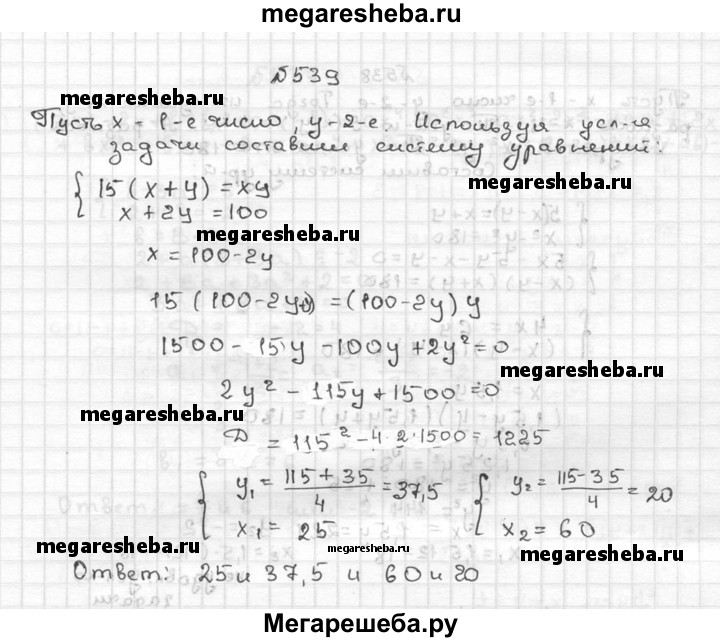 megaresheba.ru
№539
megaresheba.ru
Пусть x - 1-е число, y-2-е. Используя усл-я
задачи составим систему уравнений:
megaresheba.ru
{ 15(x+y)=xy
x+2y=100
megaresheba.ru
x=100-2y
15(100-2y+y)=(100-2y)y
1500-15y-100y+2y²=0
megaresheba.ru
2y²-115y+1500=0
megaresheba.ru
D=115²-4·2·1500=1225
{ y₁=(115+35)/4=37,5 { y₂=(115-35)/4=20
x₁=25 x₂=60
megaresheba.ru megaresheba.ru megaresheba.ru
Ответ: 25 и 37,5 и 60 и 20
Мегарешеба.ру